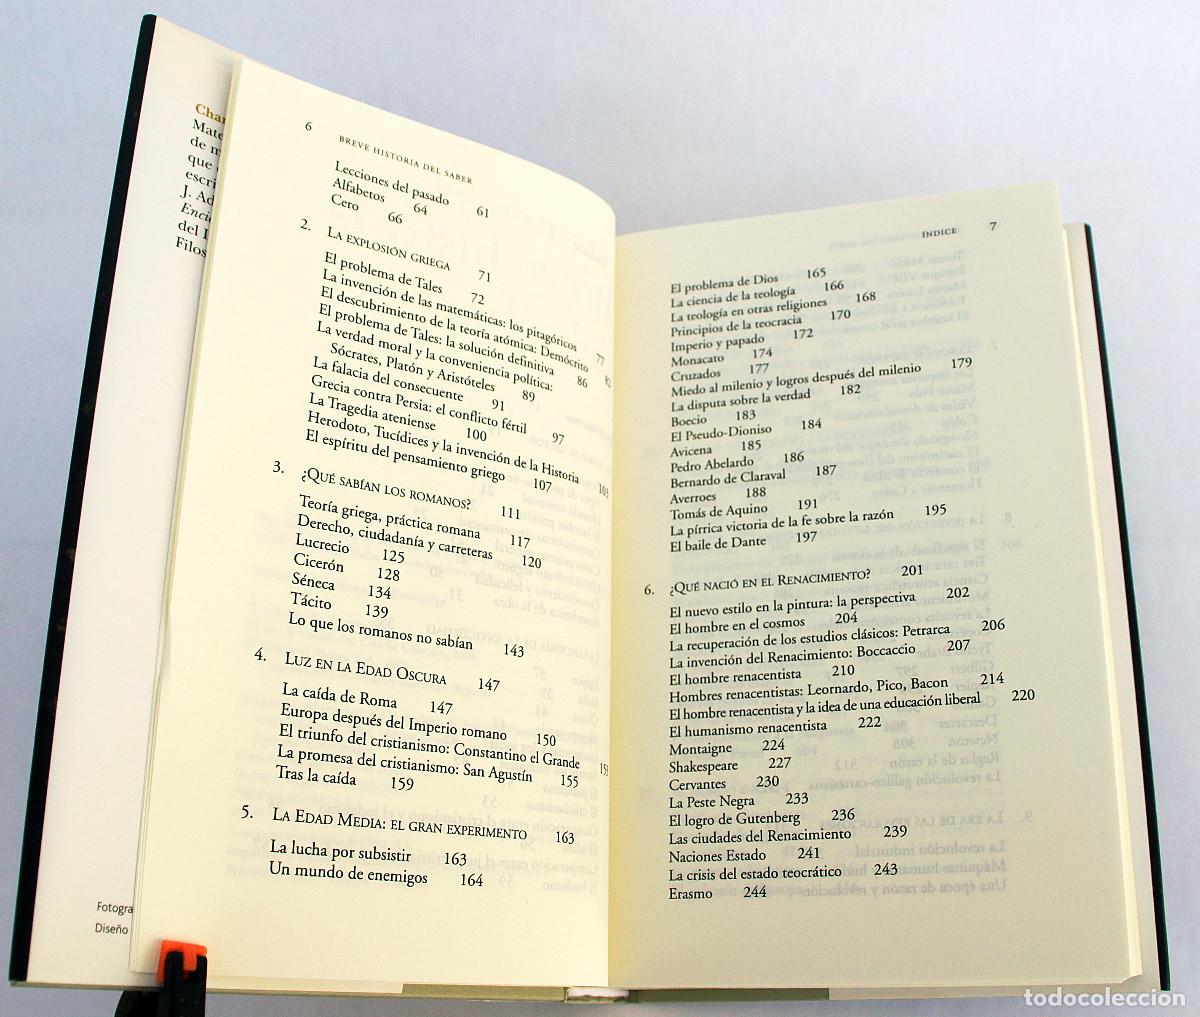 Char
Mate
de m
que
escri
J. Ad
Enci
del I
Filos
Fotogra
Diseño
6 BREVE HISTORIA DEL SABER
Lecciones del pasado 61
Alfabetos 64
Cero 66
2. LA EXPLOSIÓN GRIEGA 71
El problema de Tales 72
La invención de las matemáticas: los pitagóricos 77
El descubrimiento de la teoría atómica: Demócrito 82
El problema de Tales: la solución definitiva 86
La verdad moral y la conveniencia política:
Sócrates, Platón y Aristóteles 89
La falacia del consecuente 91
Grecia contra Persia: el conflicto fértil 97
La Tragedia ateniense 100
Herodoto, Tucídices y la invención de la Historia 103
El espíritu del pensamiento griego 107
3. ¿QUÉ SABÍAN LOS ROMANOS? 111
Teoría griega, práctica romana 117
Derecho, ciudadanía y carreteras 120
Lucrecio 125
Cicerón 128
Séneca 134
Tácito 139
Lo que los romanos no sabían 143
4. LUZ EN LA EDAD OSCURA 147
La caída de Roma 147
Europa después del Imperio romano 150
El triunfo del cristianismo: Constantino el Grande
La promesa del cristianismo: San Agustín 155
Tras la caída 159
5. LA EDAD MEDIA: EL GRAN EXPERIMENTO 163
La lucha por subsistir 163
Un mundo de enemigos 164
ÍNDICE 7
El problema de Dios 165
La ciencia de la teología 166
La teología en otras religiones 168
Principios de la teocracia 170
Imperio y papado 172
Monacato 174
Cruzados 177
Miedo al milenio y logros después del milenio 179
La disputa sobre la verdad 182
Boecio 183
El Pseudo-Dioniso 184
Avicena 185
Pedro Abelardo 186
Bernardo de Claraval 187
Averroes 188
Tomás de Aquino 191
La pírrica victoria de la fe sobre la razón 195
El baile de Dante 197
6. ¿QUÉ NACIÓ EN EL RENACIMIENTO? 201
El nuevo estilo en la pintura: la perspectiva 202
El hombre en el cosmos 204
La recuperación de los estudios clásicos: Petrarca 206
La invención del Renacimiento: Boccaccio 207
El hombre renacentista 210
Hombres renacentistas: Leornardo, Pico, Bacon 214
El hombre renacentista y la idea de una educación liberal 220
El humanismo renacentista 222
Montaigne 224
Shakespeare 227
Cervantes 230
La Peste Negra 233
El logro de Gutenberg 236
Las ciudades del Renacimiento 239
Naciones Estado 241
La crisis del estado teocrático 243
Erasmo 244
todocoleccion